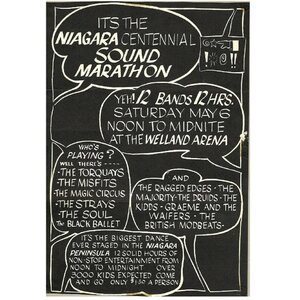 ITS THE
NIAGARA CENTENNIAL
SOUND
MARATHON
YEH! 12 BANDS 12 HRS.
SATURDAY MAY 6
NOON TO MIDNITE
AT THE WELLAND ARENA
WHO'S
PLAYING?
WELL THERE'S ----
- THE TORQUAYS
- THE MISFITS
- THE MAGIC CIRCUS
- THE STRAYS
- THE SOUL
- THE BLACK BALLET
AND
THE RAGGED EDGES - THE
MAJORITY - THE DRUIDS - THE
KIDDS - GRAEME AND THE
WAIFERS - THE
BRITISH MODBEATS -
IT'S THE BIGGEST DANCE
EVER STAGED IN THE NIAGARA
PENINSULA 12 SOLID HOURS OF
NON-STOP ENTERTAINMENT FROM
NOON TO MIDNIGHT OVER
3000 KIDS EXPECTED COME
AND GO ONLY $1.50 A PERSON